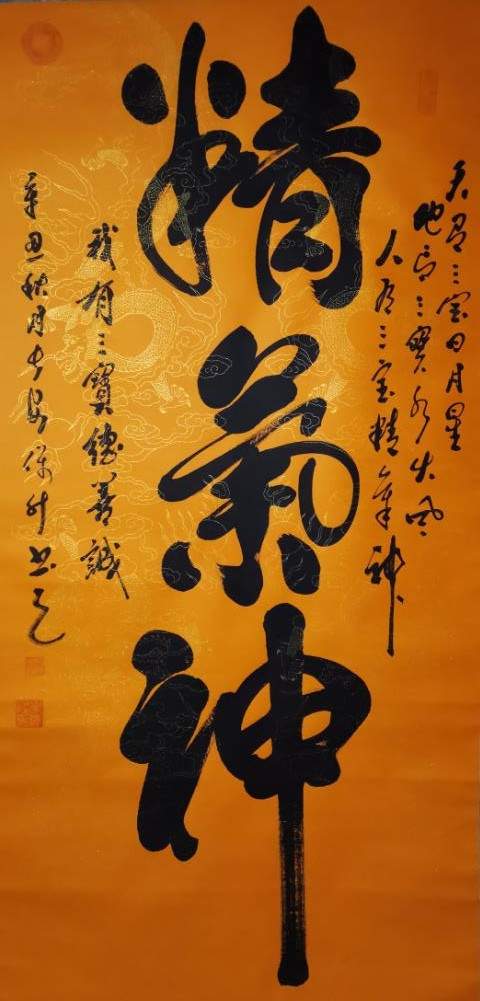 天有三宝日月星
地有三寶水火风
人有三宝精氣神
精氣神
我有三寶德善誠
辛丑秋月长安保升书之